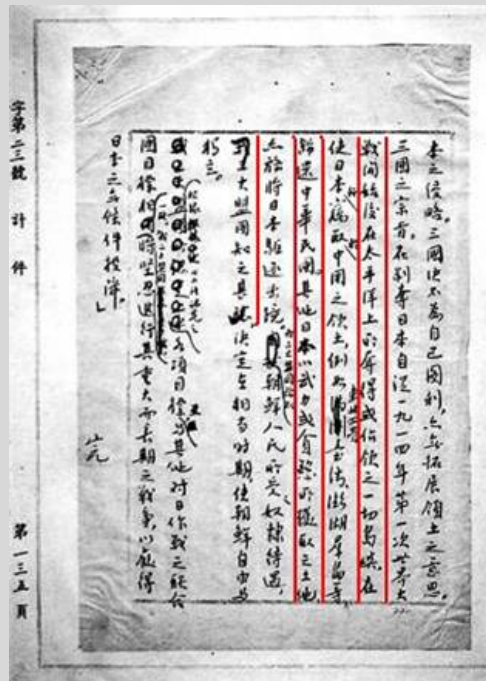 本之侵略。三國決不為自己圖利,亦無拓展領土之意思。
三國之宗旨,在剝奪日本自從一九一四年第一次世界大
戰開始後在太平洋上所奪得或佔領之一切島嶼,在
使日本竊取中國之領土,例如臺灣澎湖羣島等,
歸還中華民國。其他日本以武力或貪慾所獲取之土地,
亦務將日本驅逐出境。朝鮮人民所受之奴隸待遇,
三大盟國知之甚 決定在相當時期,使朝鮮自由
獨立。
各項目標 與其他對日作戰之聯合
國目標相 堅忍進行其重大而長期之戰爭,以獲得
日本之無條件投降。」
完
字第二三號 計 件
第一三五頁